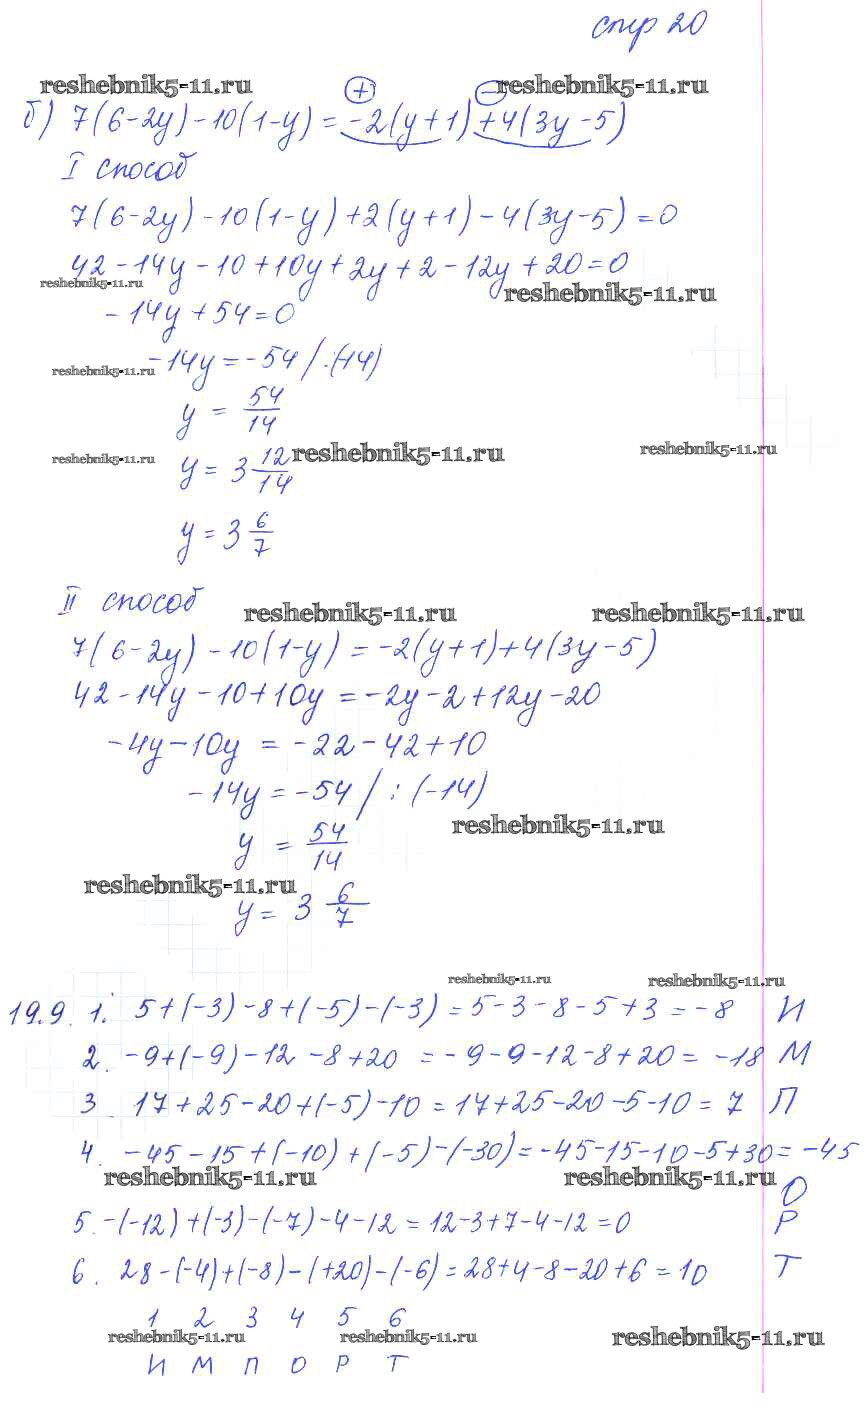 стр 20
reshebnik5-11.ru reshebnik5-11.ru
+ −
б) 7(6-2y)-10(1-y)=-2(y+1)+4(3y-5)
I способ
7(6-2y)-10(1-y)+2(y+1)-4(3y-5)=0
42-14y-10+10y+2y+2-12y+20=0
reshebnik5-11.ru reshebnik5-11.ru
-14y+54=0
-14y=-54/:(-14)
reshebnik5-11.ru
y = 54/14
reshebnik5-11.ru reshebnik5-11.ru reshebnik5-11.ru
y = 3 12/14
y = 3 6/7
II способ
reshebnik5-11.ru reshebnik5-11.ru
7(6-2y)-10(1-y)=-2(y+1)+4(3y-5)
42-14y-10+10y=-2y-2+12y-20
-4y-10y = -22-42+10
-14y=-54/:(-14)
reshebnik5-11.ru
y = 54/14
reshebnik5-11.ru
y = 3 6/7
reshebnik5-11.ru reshebnik5-11.ru
19.9. 1. 5+(-3)-8+(-5)-(-3)=5-3-8-5+3=-8 И
2. -9+(-9)-12-8+20 =-9-9-12-8+20= -18 М
3. 17+25-20+(-5)-10=17+25-20-5-10=7 П
4. -45-15+(-10)+(-5)-(-30)=-45-15-10-5+30=-45
reshebnik5-11.ru reshebnik5-11.ru
О
5. -(-12)+(-3)-(-7)-4-12=12-3+7-4-12=0 Р
6. 28-(-4)+(-8)-(+20)-(-6)=28+4-8-20+6=10 Т
1 2 3 4 5 6
reshebnik5-11.ru reshebnik5-11.ru reshebnik5-11.ru
И М П О Р Т